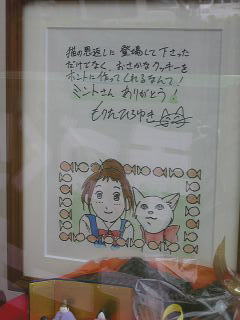 猫の恩返しに登場して下さった
だけでなく、おさかなクッキーを
ホントに作ってくれるなんて!
ミントさん ありがとう!
もりたひろゆき